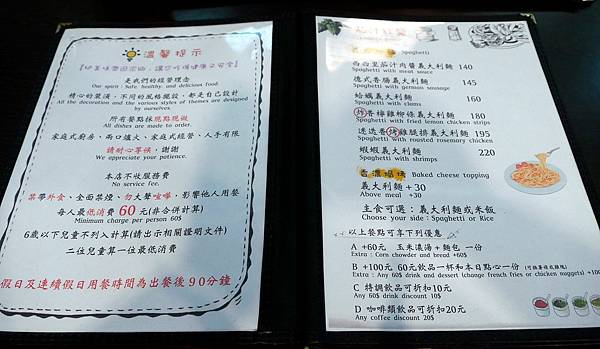 溫馨提示
是我們的經營理念
Our spirit : Safe, healthy, and delicious food.
精心的裝潢、不同的風格擺設,都是自己設計
All the decoration and the various styles of themes are designed by ourselves.
所有餐點採現點現做
All dishes are made to order.
家庭式廚房、兩口爐火、家庭式經營、人手有限
請耐心等候,謝謝
We appreciate your patience.
本店不收服務費
No service fee.
禁帶外食、全面禁煙、勿大聲喧嘩,影響他人用餐
每人最低消費 60 元(非合併計算)
Minimum charge per person 60$
6歲以下兒童不列入計算(請出示相關證明文件)
二位兒童算一位最低消費
假日及連續假日用餐時間為出餐後90分鐘
Spaghetti
西西里茄汁肉醬義大利麵 140
Spaghetti with meat sauce
德式香腸義大利麵 145
Spaghetti with german sausage
蛤蠣義大利麵 160
Spaghetti with clams
炸香檸雞柳條義大利麵 180
Spaghetti with fried lemon chicken strips
迷迭香烤雞腿排義大利麵 195
Spaghetti with roasted rosemary chicken
蝦蝦義大利麵 220
Spaghetti with shrimps
香濃焗烤 Baked cheese topping
義大利麵+30
Above meal +30
主食可選:義大利麵或米飯
Choose your side : Spaghetti or Rice
以上餐點可享下列優惠
A +60元 玉米濃湯+麵包 一份
Extra : Corn chowder and bread +60$
B +100元 60元飲品一杯和本日點心一份
Extra : Any 60$ drink and dessert (change french fries or chicken nuggets) +100
C 特調飲品可折扣10元
Any 60$ drink discount 10$
D 咖啡類飲品可折扣20元
Any coffee discount 20$